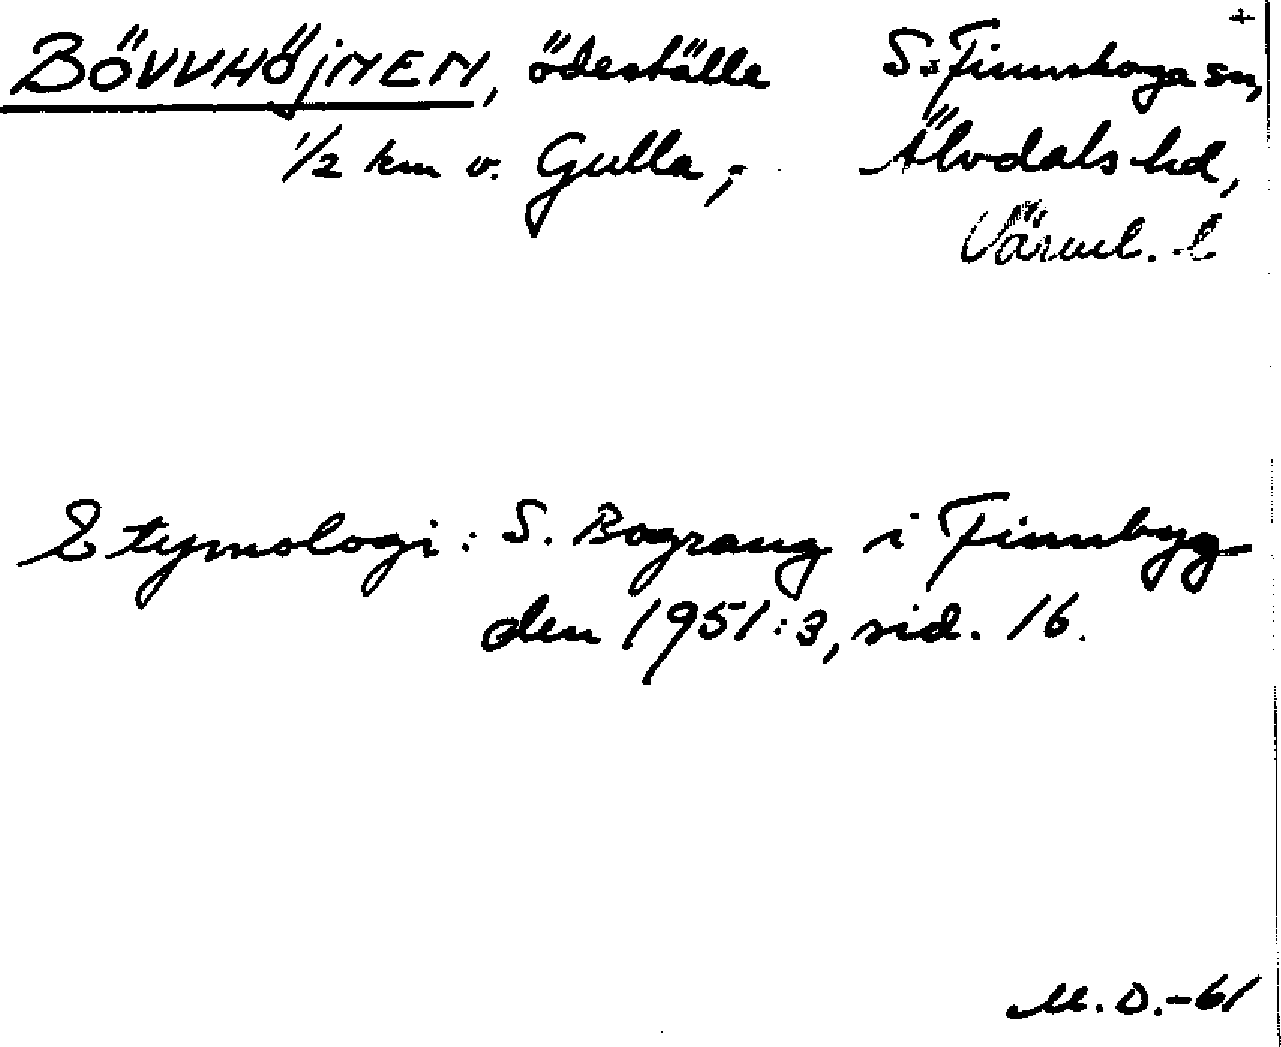 +
BÖVVHÖJNEN, ödeställe S. Finnskoga sn,
1/2 km v. Gulla, Älvdals hd,
Värml. l
Etymologi: S. Bograng i Finnbyg
den 1951:3, sid. 16.
M.D.-61